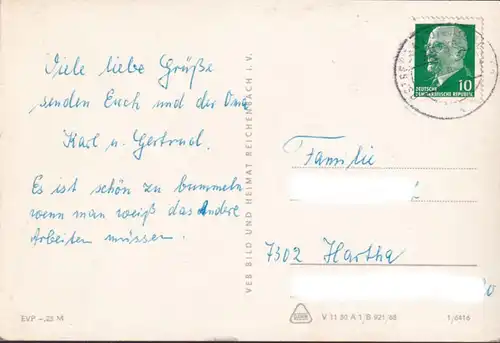 Viele liebe Grüße
senden Euch und der Oma
Karl u. Gertrud.
Es ist schön zu bummeln
wenn man weiß das Andere
Arbeiten müssen.
VEB BILD UND HEIMAT REICHENBACH i. V.
10
DEUTSCHE
DEMOKRATISCHE REPUBLIK
Familie
7302 Hartha
EVP –,25 M
V 11 50 A 1/B 921/68
1/6416